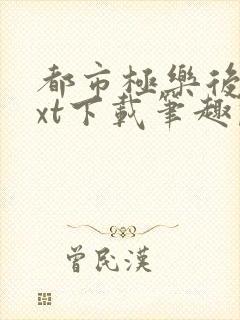 都市極樂後
xt下載筆趣
曾民漢